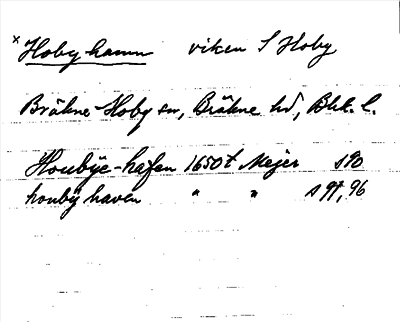 x Hoby hamn viken S Hoby
Bräkne-Hoby sn, Bräkne hd, Blek. l.
Houbÿe-hafen 1650t Mejer s 90
houbÿ haven " " s 91, 96